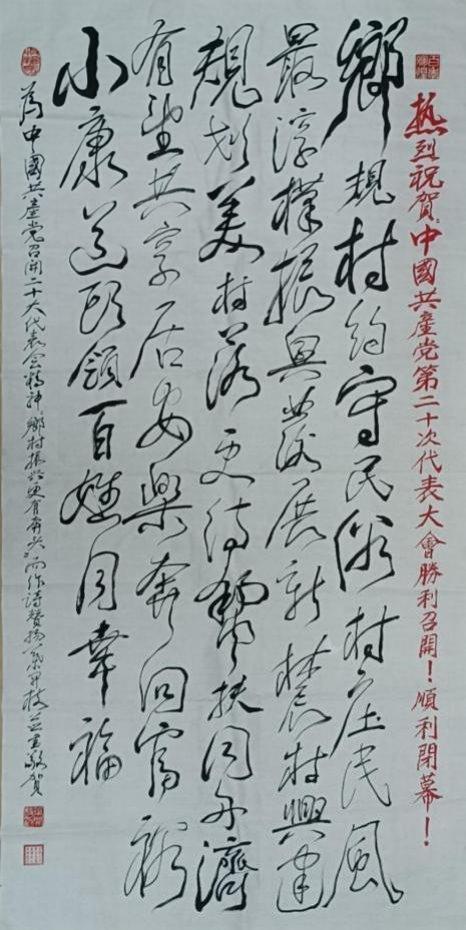 热烈祝賀中國共產党第二十次代表大會勝利召開！順利閉幕！
鄉規村約守民俗村庄民風
最淳樸振興展新村興建
規划美村落更待幫扶同舟濟
有望共享居安樂奔向富裕
小康領百姓同幸福
為中國共產党召開二十大代表会精神鄉村振兴更有奔头而作詩贊揚並書敬賀